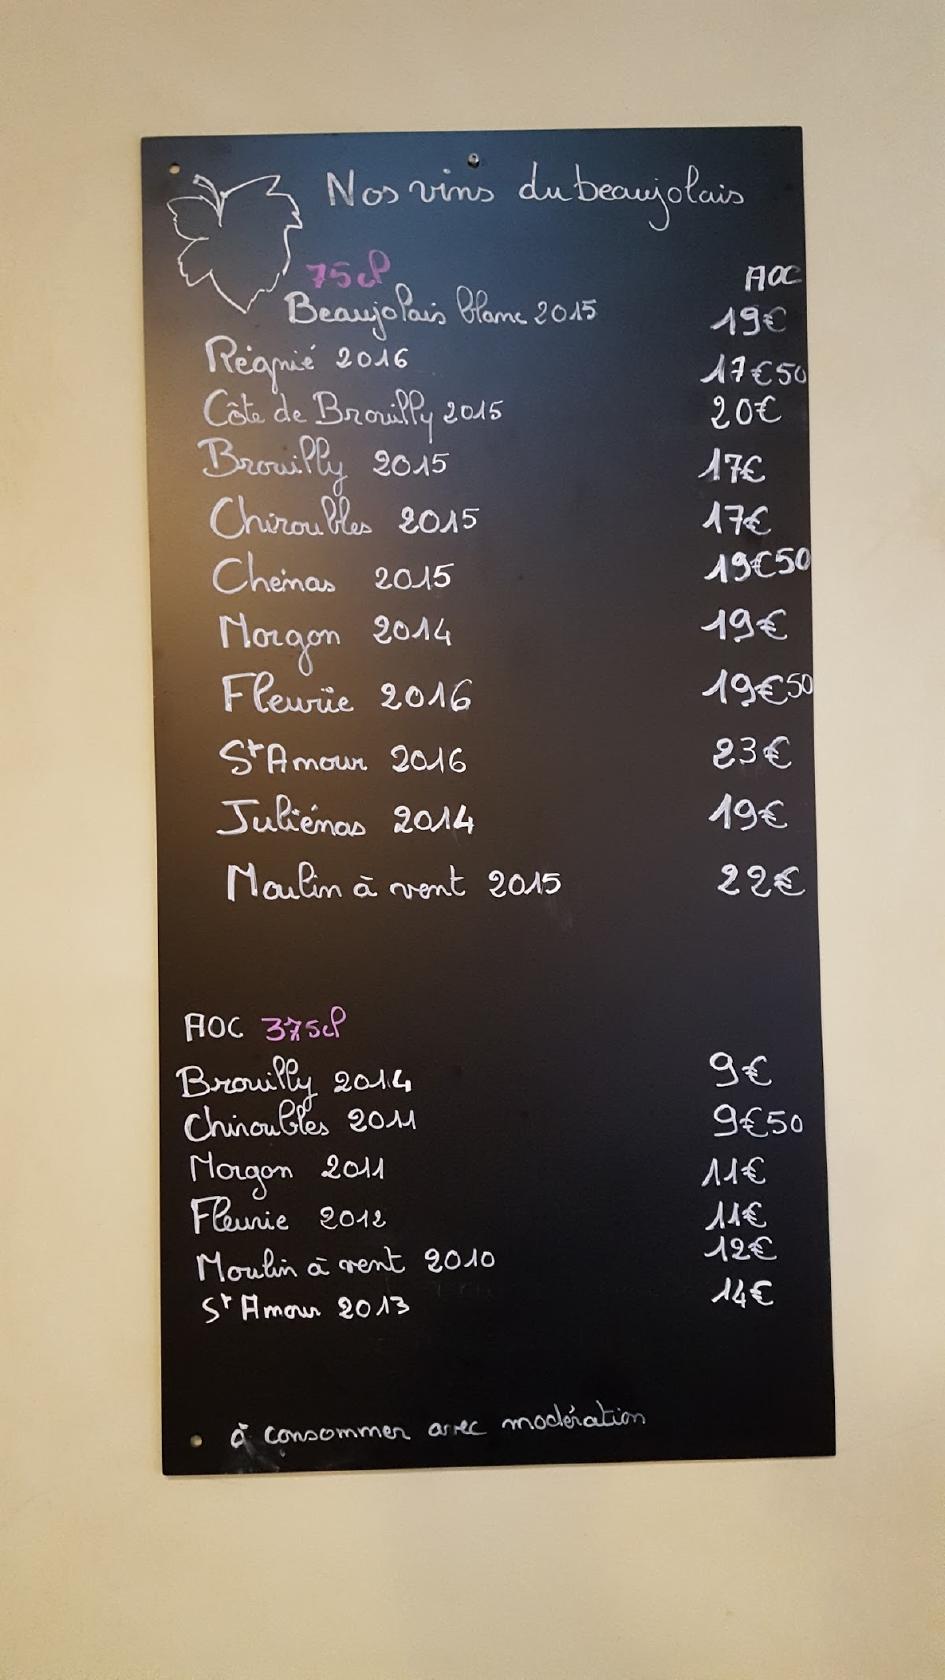 Nos vins du beaujolais
75cl AOC
Beaujolais blanc 2015 19€
Régnié 2016 17€50
Côte de Brouilly 2015 20€
Brouilly 2015 17€
Chiroubles 2015 17€
Chénas 2015 19€50
Morgon 2014 19€
Fleurie 2016 19€50
St Amour 2016 23€
Juliénas 2014 19€
Moulin à vent 2015 22€
AOC 37,5cl
Brouilly 2014 9€
Chiroubles 2011 9€50
Morgon 2011 11€
Fleurie 2012 11€
Moulin à vent 2010 12€
St Amour 2013 14€
à consommer avec modération